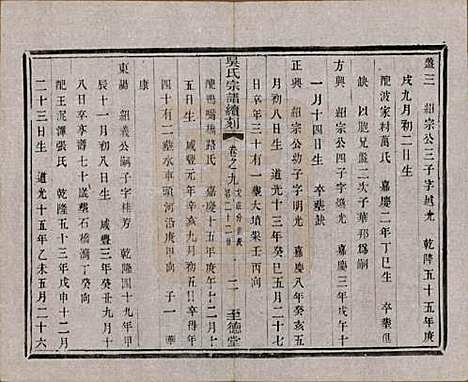 盤三 紹宗公三子字越光 乾隆五十五年庚
戌九月初二日生 卒葬俱
龍波家村萬氏 嘉慶二年丁巳生
缺 以胞兄盤二次子華邦爲嗣
紹宗公四子字 光 嘉慶三年戊午十
一月十四日生 卒葬缺
正興 紹宗公幼子字明光 嘉慶八年癸亥五
月初八日生 咸豐十三年癸 五月二十七
日卒年三十有一 大墳 壬丙向
吳氏宗譜續刻
卷之九
二
至德堂
橋 氏 嘉慶十五年庚午十二月
五日生 咸豐元年辛亥八月初五日卒年
四十有二葬水車頭河沿庚甲向 子一 華
康
東陽 紹義公嗣子字桂芳 乾隆四十九年甲
辰十一月初八日生 咸豐三年癸丑九月十
八日卒享壽七十歲葬石橋灣丁癸向
龍王沉譚張氏 乾隆五十三年戊申十二月
二十三日生 道光十五年乙未五月二十六